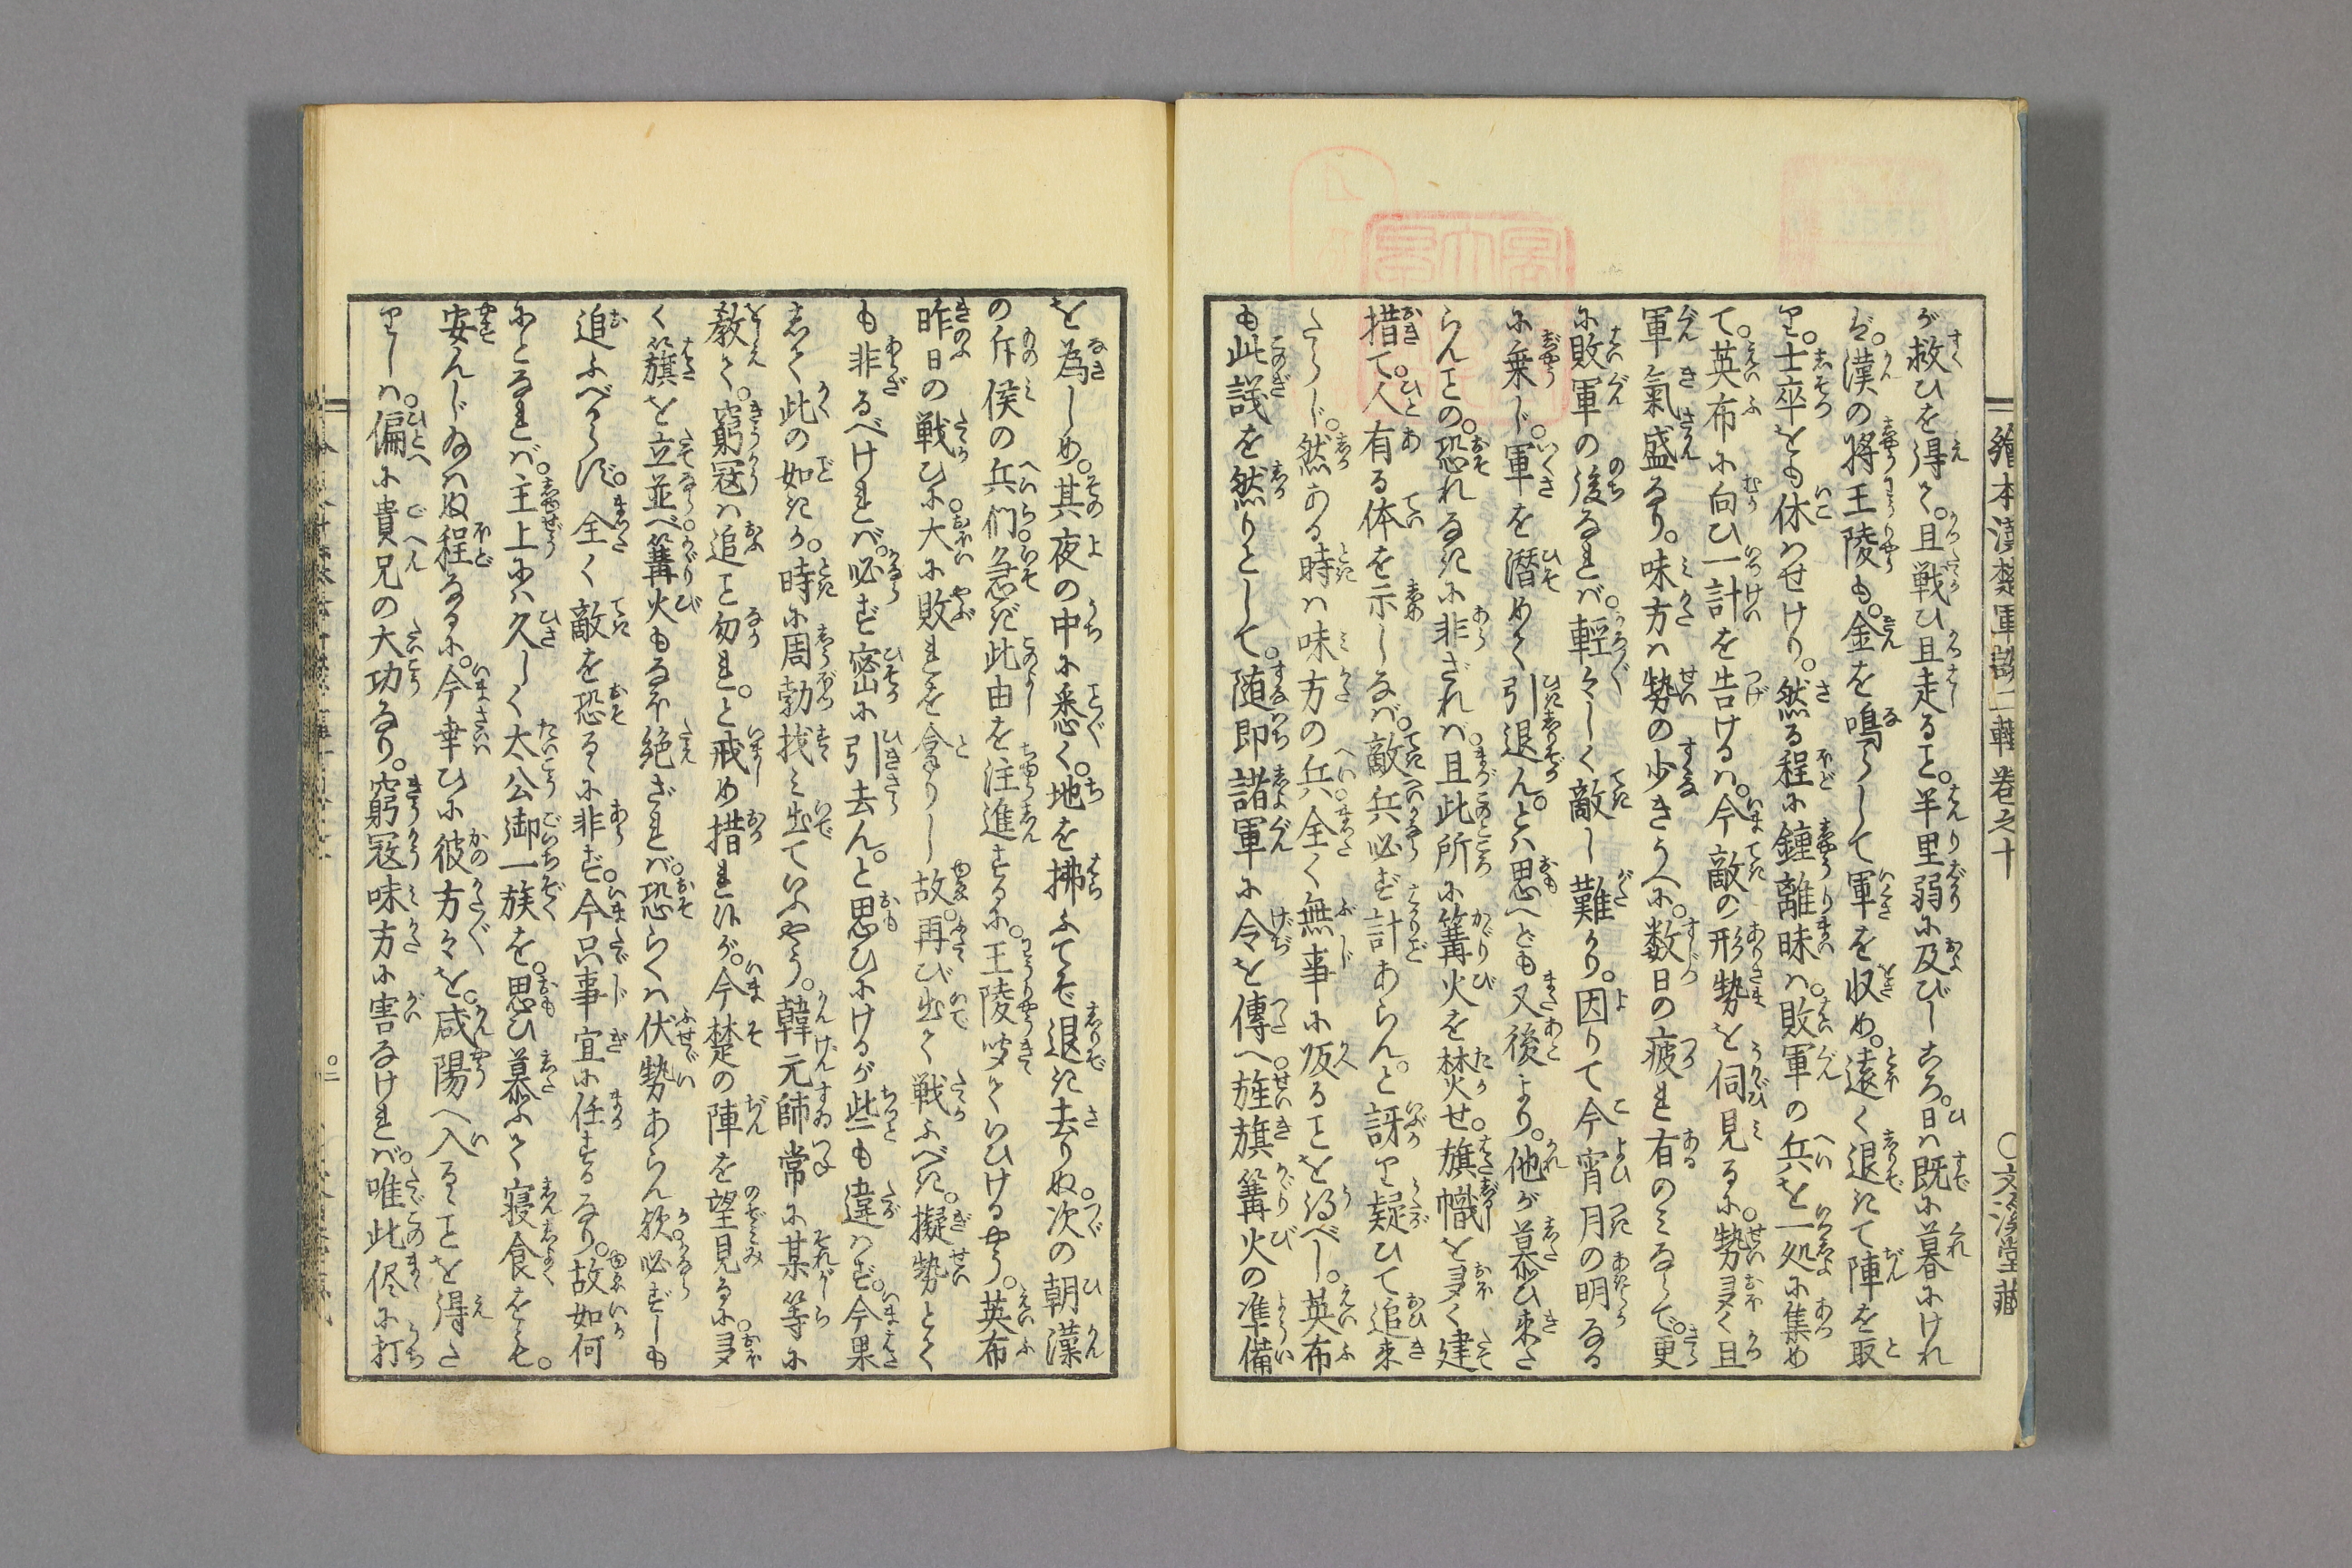 繪本漢楚軍談二輯 卷之十 ○文渓堂藏
が救ひを得て。且戦ひ且走ること。半里弱に及びしころ。日は既に暮にけれ
ば。漢の將王陵も。金を鳴らして軍を収め。遠く退きて陣を取
り。士卒をも休はせけり。然る程に鍾離昧は。敗軍の兵を一処に集め
て。英布に向ひ一計を告けるは。今敵の形勢を伺見るに。勢多く且
軍氣盛なり。味方は勢の少きうへに。数日の疲れ有のみならで。更
に敗軍の後なれば。輕々しく敵し難かり。因りて今宵月の明なる
に乗じ。軍を潜めて引退ん。とは思へども又後より。他が慕ひ来た
らんことの。恐れなきに非ざれば。且此所に篝火を焚せ。旗幟を多く建
措て。人有る体を示しなば。敵兵必ず計あらん。と訝り疑ひて追来
たらじ。然ある時は味方の兵。全く無事に皈ることを得べし。英布
も此議を然りとして。随即諸軍に令を傳へ。旌旗篝火の准備
を為しめ。其夜の中に悉く。地を拂ふてぞ退き去りぬ。次の朝漢
の斥候の兵們。急ぎ此由を注進するに。王陵聞ていひけるやう。英布
昨日の戦ひに。大に敗れを拿りし故。再び出て戦ふべき。擬勢とて
も非るべければ。必ず密に引去ん。と思ひけるが些も違はず。今果
して此の如きか。時に周勃找み出ていふやう。韓元帥常に某等に
教て。窮冦は追こと勿れ。と戒め措れしが。今楚の陣を望見るに。多
く籏を立並べ。篝火もなほ絶ざれば。恐らくは伏勢あらん欤。必ずしも
追ふべからず。全く敵を恐るゝに非ず。今只事宜に任するなり。故如何
にとなれば。主上には久しく太公御一族を。思ひ慕ふて寝食をも。
安んじ給はぬ程なるに。今幸ひに彼方々を。咸陽へ入るゝことを得た
りしは。偏に貴兄の大功なり。窮冦味方に害なければ。唯此侭に打